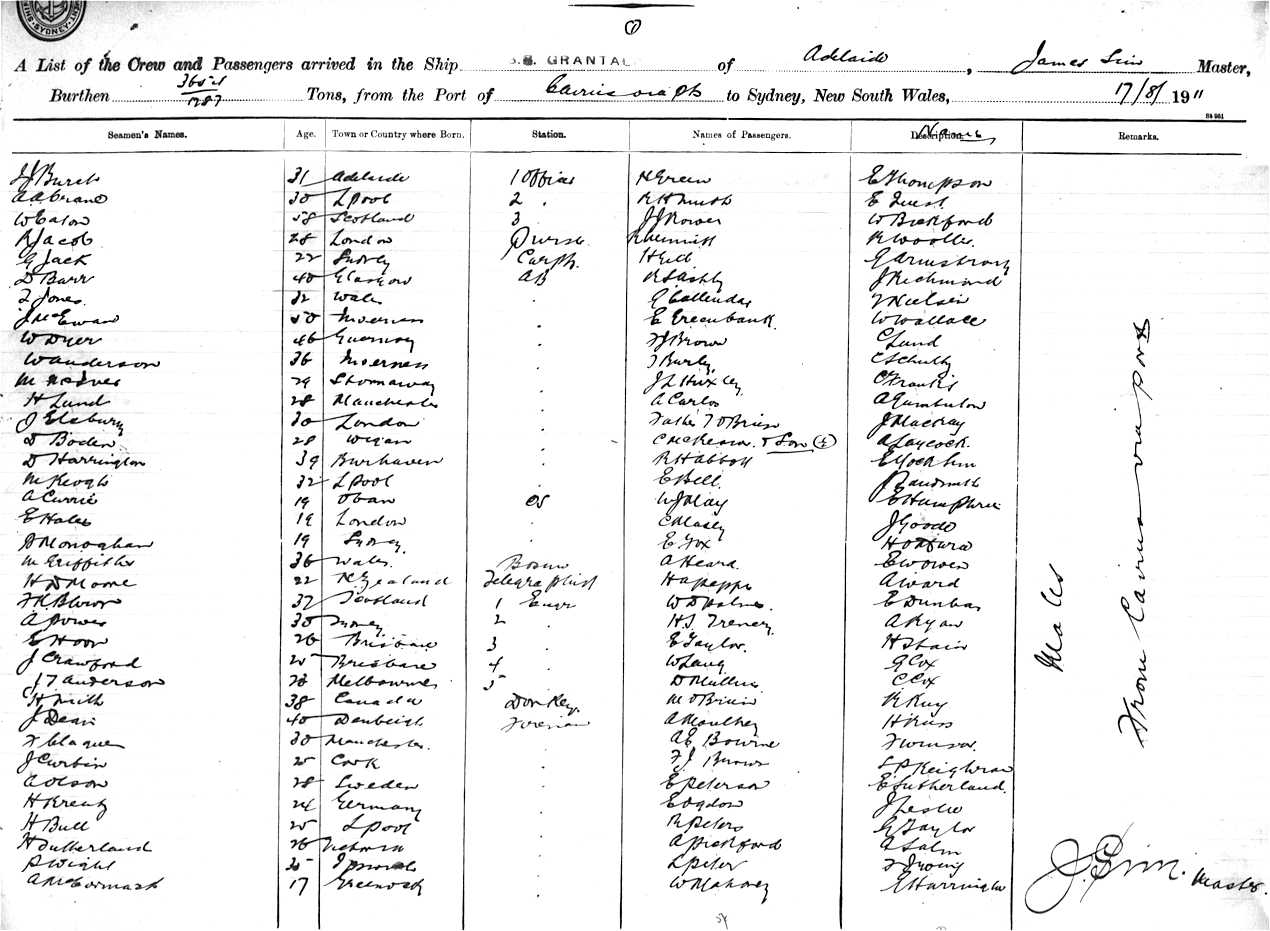 SYDNEY
A List of the Crew and Passengers arrived in the Ship S.S. GRANTAL of Adelaide, James Sim Master,
Burthen 3655/1787 Tons, from the Port of Cairns via pts to Sydney, New South Wales, 17/8/1911
Seamen's Names. Age. Town or Country where Born. Station. Names of Passengers. Description Names Remarks.
J J Burch 31 Adelaide 1 Officer H Green E Thompson
A A Crane 30 Lpool 2 R H Smith E Guest
W Eaton 58 Scotland 3 J J Rower W Bickford
R Jacob 28 London Purser R Woolle
G Jack 22 Sydney Carptr G Armstrong
D Barr 40 Glasgow AB J Richmond
T Jones 32 Wales G Callendar T Nielsen
J McEwan 50 Inverness E Greenbank W Wallace
W Dyer 46 Guernsey F J Brown C Lund
W Anderson 36 Inverness T Burley C Schultz
M McIver 29 Stornaway J L Huxley C Francis
H Lund 28 Manchester A Carlos A Gambulow
J Elsbury 30 London Father T O'Brien J Mackay
D Boden 28 Wigan C McKenna & Son A Laycock
D Harrington 39 Burhaven R H Abbott
M Keogh 32 Lpool E Bell J Bandsmith
A Currie 19 Oban OS W J May E Humphries
E Hales 19 London C Maley J Goode
D Monoghan 19 Sydney E Fox
M Griffiths 36 Wales Bosun A Heard E W Owen
H D Moore 22 N Zealand Telegraphist H A Pepper A Ward
Scotland 1 Engr W D Palmer E Dunbar
A Power 30 Sydney 2 H S Treney A Ryan
E Hoon 26 Brisbane 3 E Taylor H Stair
J Crawford 25 Brisbane 4 W Lang G Cox
J T Anderson 28 Melbourne 5 D Mullins C Cox
H Smith 38 Canada Donkey M O'Brien R Kuy
J Dean 40 Denbeigh Fireman A Moulthey H Russ
F Claque 30 Manchester A E Bourne
J Curbin 25 Cook F J Brown L P Keighran
A Olson 28 Sweden E Peterson E Sutherland
H Kreutz 24 Germany E Ogdon J Leslie
H Bull 25 Lpool R Peters G Taylor
H Sutherland 26 Victoria A Pickford A Salm
S Wright 35 Ipswich L Peter F Irving
A McCormack 17 Greenock W Mahoney E Harrington
Males
From Cairns via ports
J. Sim. Master.